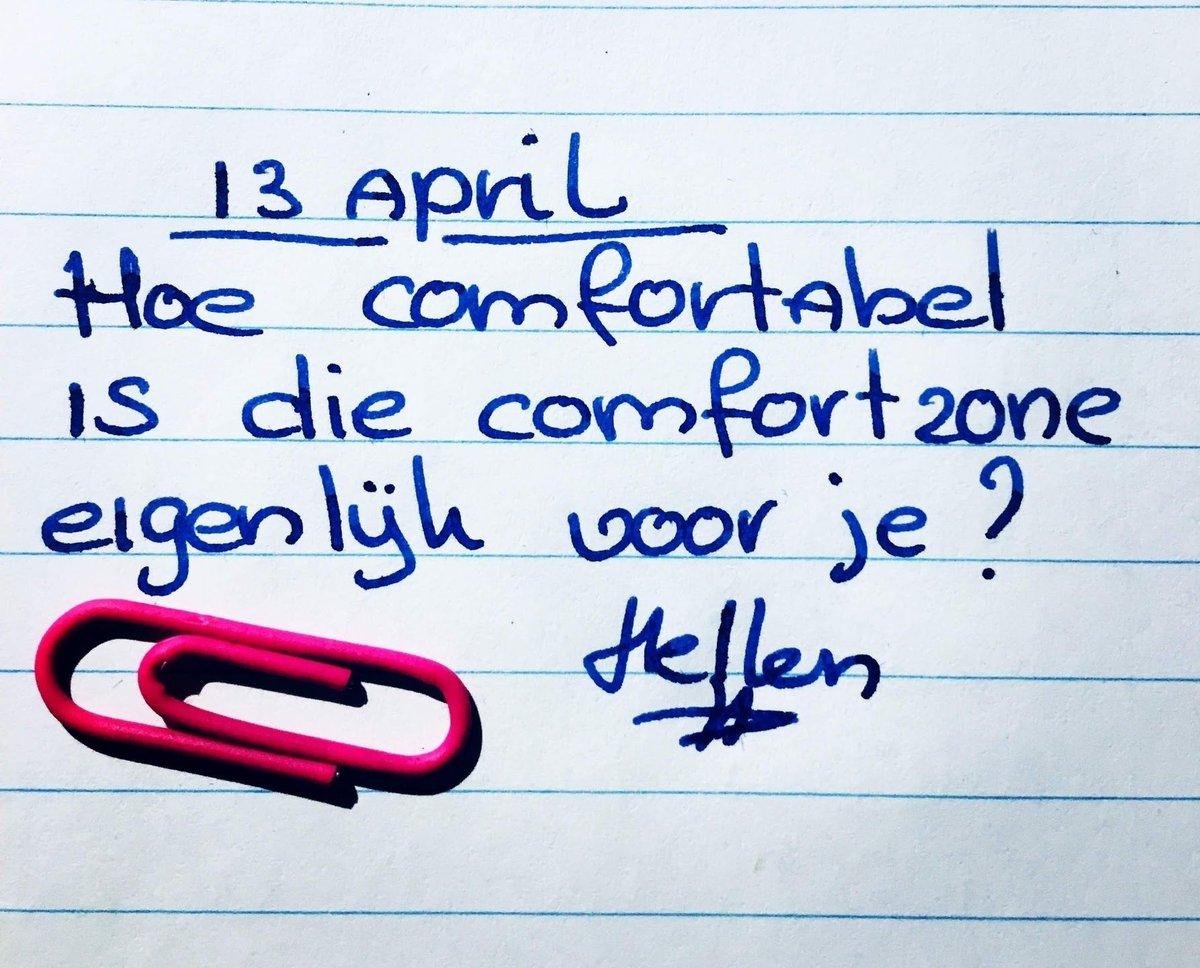 13 April
Hoe comfortabel
is die comfortzone
eigenlijk voor je?
Hellen